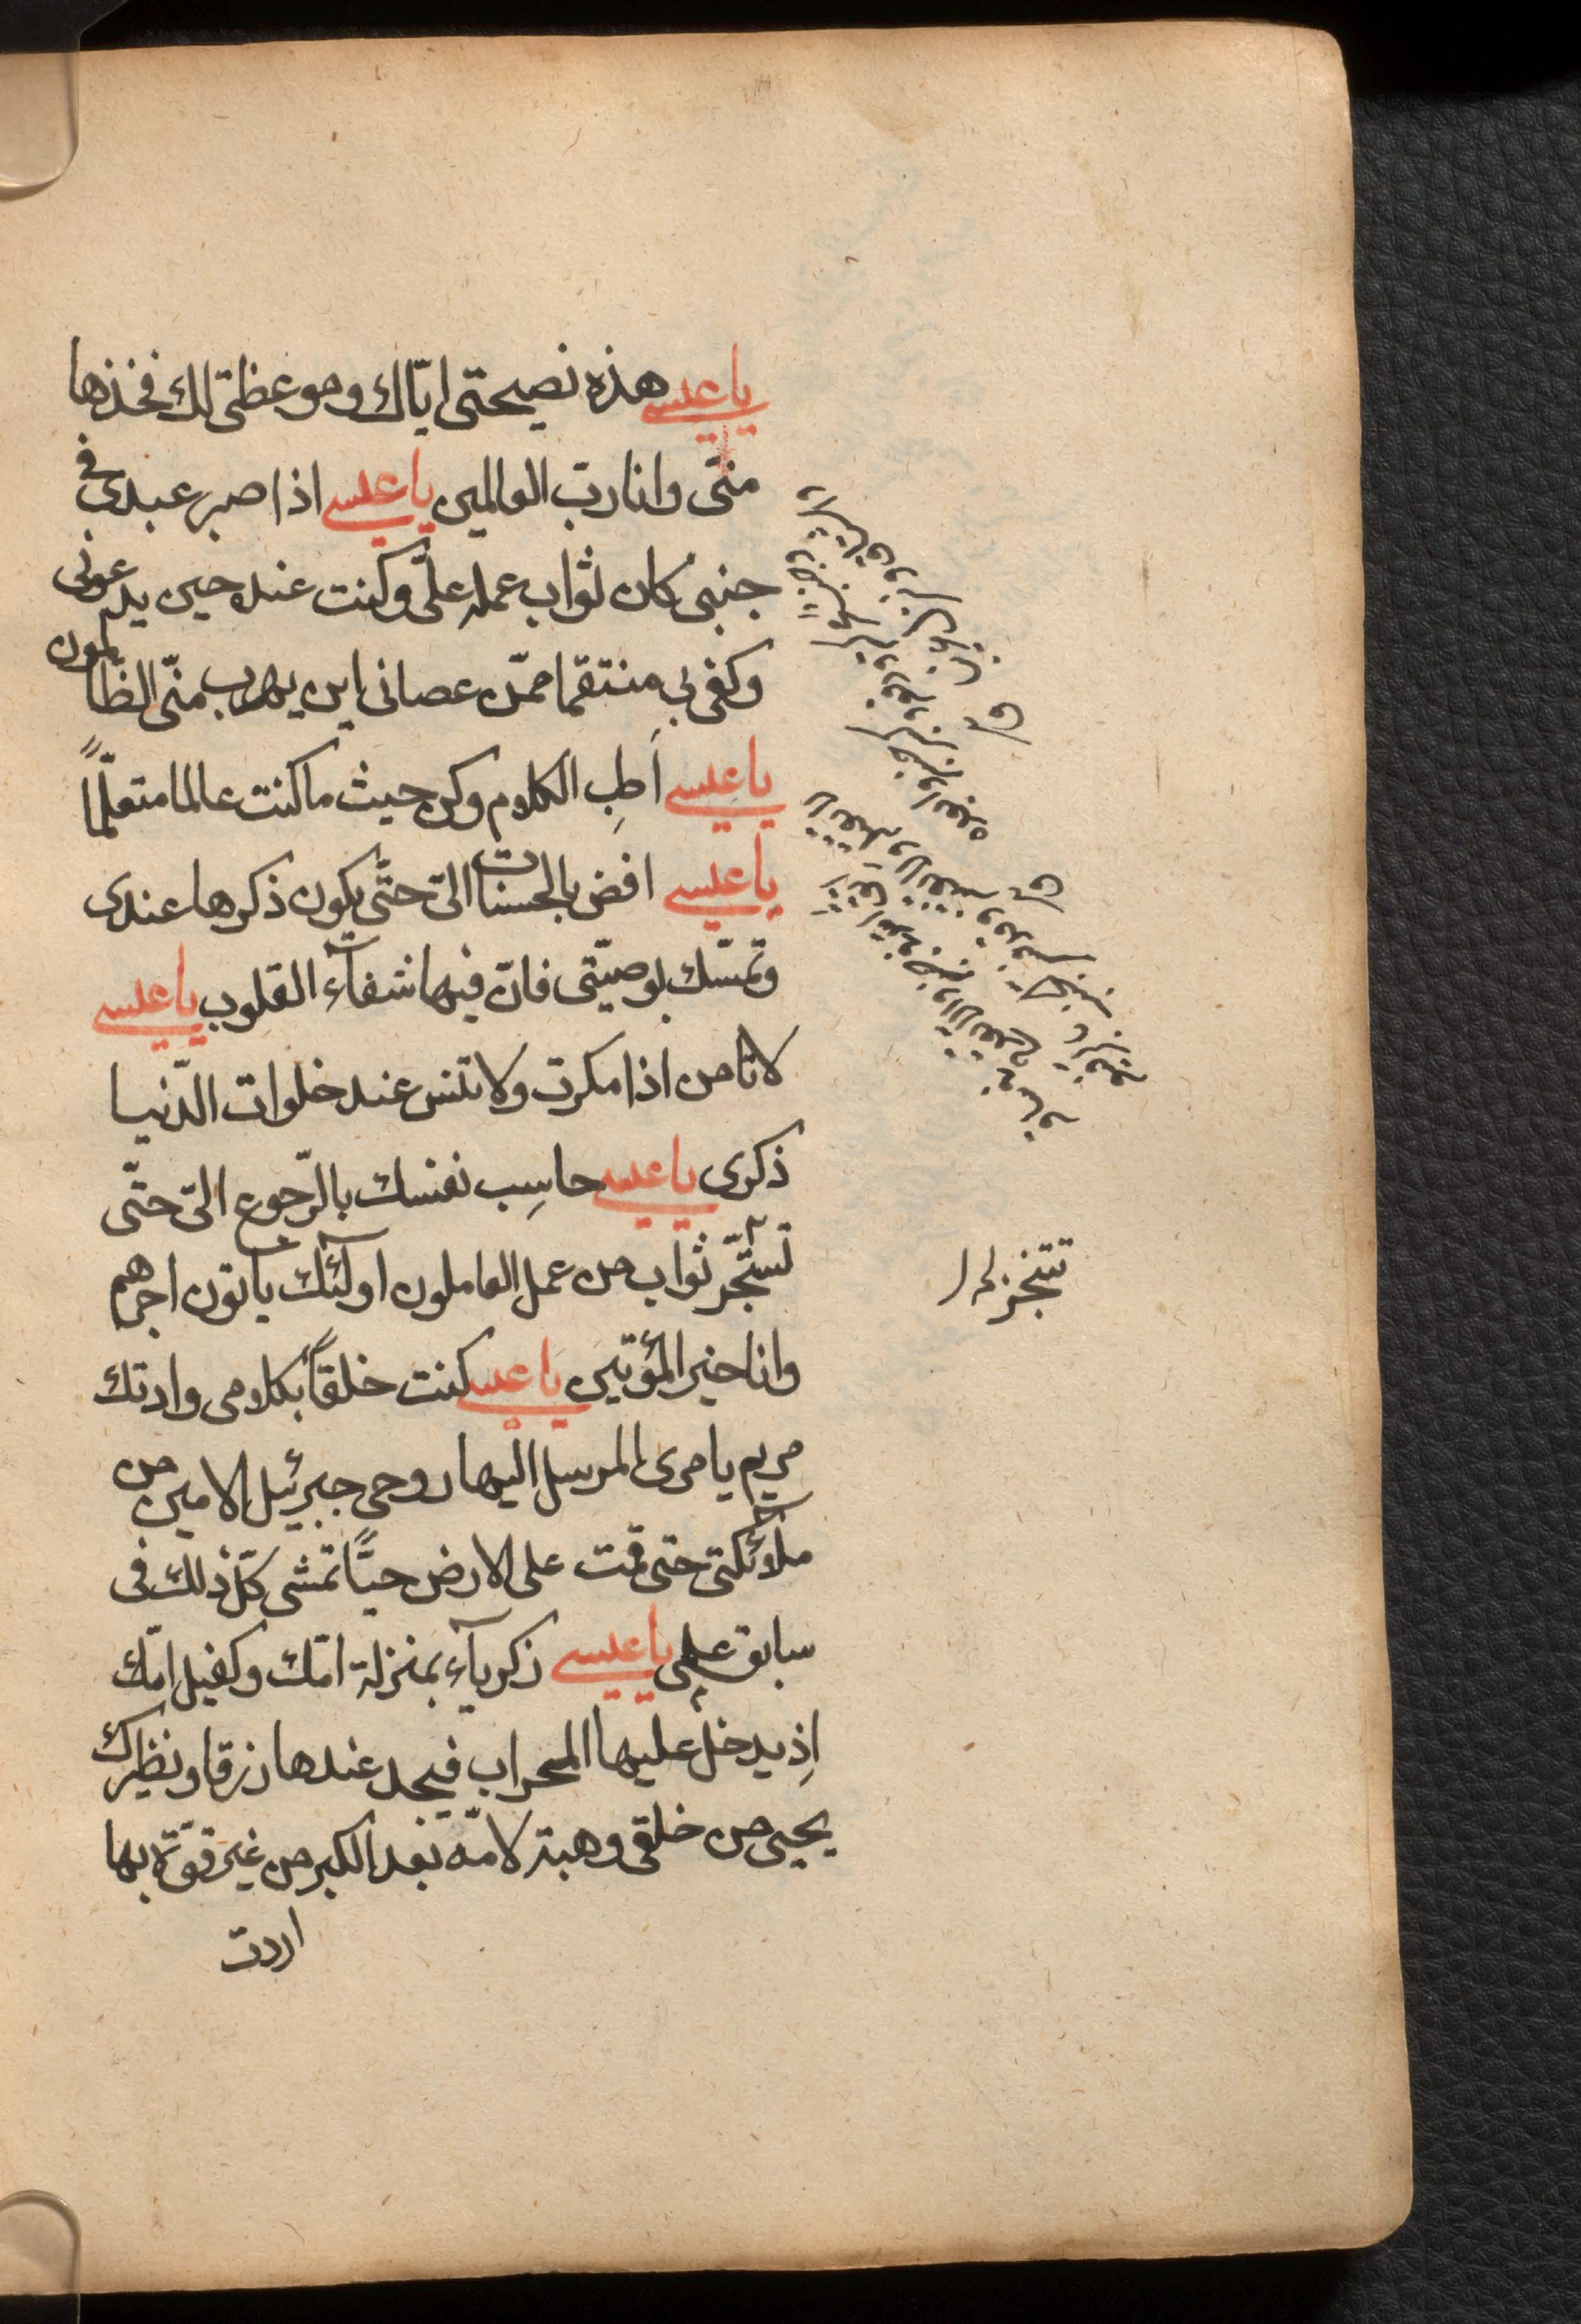 يا عيسى هذه نصيحتى ايّاك وموعظتى لك فخذها
منّى وانا ربّ العالمين يا عيسى اذا صبر عبدى فى
جنبى كان ثواب عمله علىّ وكنت عنده حين يدعونى
وكفى بى منتقما ممّن عصانى اين يهرب منّى الظالمون
يا عيسى اَطِبِ الكلام وكن حيث ما كنت عالما متعلّماً
يا عيسى افض بالحسنات الىّ حتّى يكون ذكرها عندى
وتمسّك بوصيّتى فانّ فيها شفآء القلوب يا عيسى
لا تامن اذا مكرت ولا تنس عند خلوات الدّنيا
ذكرى يا عيسى حاسِب نفسك بالرّجوع الىّ حتّى
تستجّر ثواب من عمل العاملون اولئك يأتون اجرهم
وانا خير المؤتين يا عيسى كنت خلقاً بكلامى وادتك
مريم بامرى المرسل اليها روحى جبرئيل الامين من
ملآئكتى حتى قمت على الارض حيّاً تمشى كلّ ذلك فى
سابق علمى يا عيسى زكريآء بمنزلة امّك وكفيل امّك
اِذ يدخل عليها المحراب فيجد عندها رزقا ونظيرك
يحيى من خلقى وهبته لامّه بعد الكبر من غير قوّة بها
اردت
تتنجز له